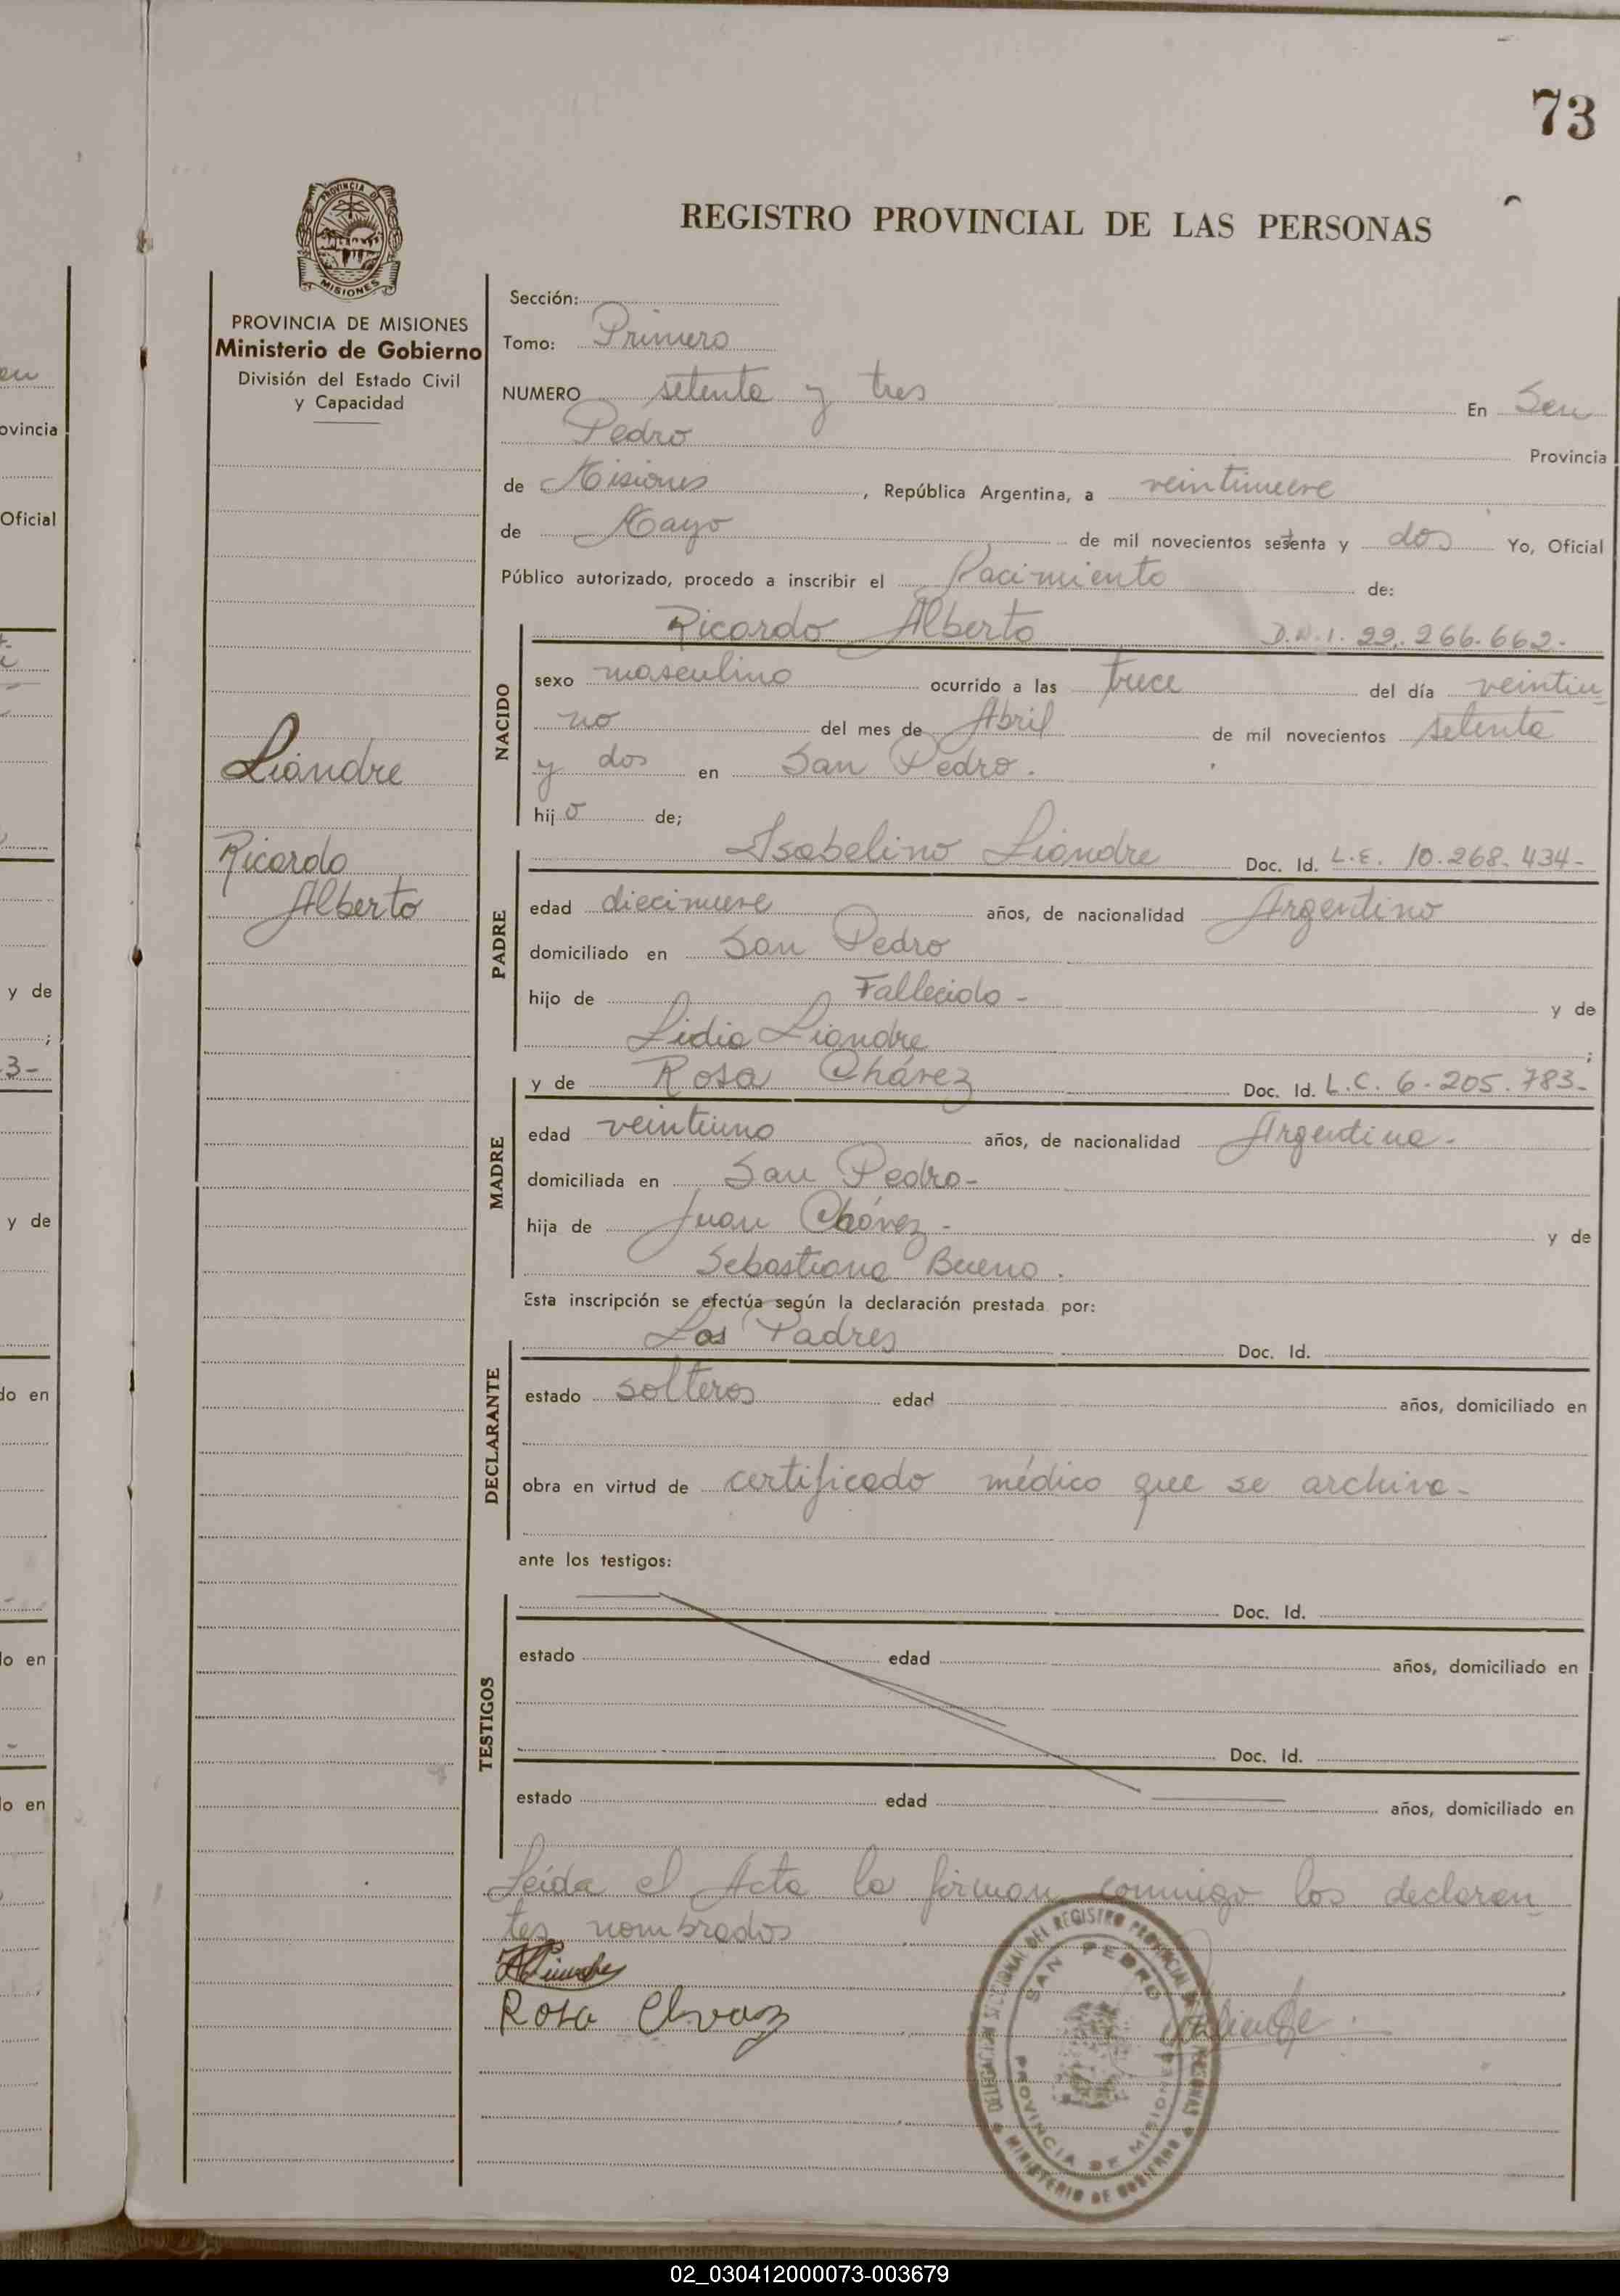 73
PROVINCIA DE MISIONES
REGISTRO PROVINCIAL DE LAS PERSONAS
PROVINCIA DE MISIONES
Ministerio de Gobierno
División del Estado Civil
y Capacidad
Liandre
Ricardo
Alberto
Sección:
Tomo: Primero
NUMERO setenta y tres En San
Pedro Provincia
de Misiones, República Argentina, a veintinueve
de Mayo de mil novecientos setenta y dos Yo, Oficial
Público autorizado, procedo a inscribir el Nacimiento de:
NACIDO
Ricardo Alberto D.N.I. 22.266.662.-
sexo masculino ocurrido a las trece del día veintiu
no del mes de Abril de mil novecientos setenta
y dos en San Pedro.
hijo de;
PADRE
Isabelino Liandre Doc. Id. L.E. 10.268.434-
edad diecinueve años, de nacionalidad Argentino
domiciliado en San Pedro
hijo de Fallecido - y de
Lidia Liandre ;
MADRE
y de Rosa Chávez Doc. Id. L.C. 6.205.783.-
edad veintiuno años, de nacionalidad Argentina.-
domiciliada en San Pedro-
hija de Juan Chávez - y de
Sebastiana Bueno.
Esta inscripción se efectúa según la declaración prestada por:
DECLARANTE
Los Padres Doc. Id.
estado solteros edad años, domiciliado en
obra en virtud de certificado médico que se archiva-
ante los testigos:
TESTIGOS
Doc. Id.
estado edad años, domiciliado en
Doc. Id.
estado edad años, domiciliado en
Leída el Acta la firman conmigo los declaran
tes nombrados
Rosa Chvaz
DELEGACION SECCIONAL DEL REGISTRO PROVINCIAL PERSONAS
SAN PEDRO
PROVINCIA DE MISIONES
MINISTERIO DE GOBIERNO
en
ovincia
Oficial
y de
;
3-
y de
do en
lo en
o en
02_030412000073-003679